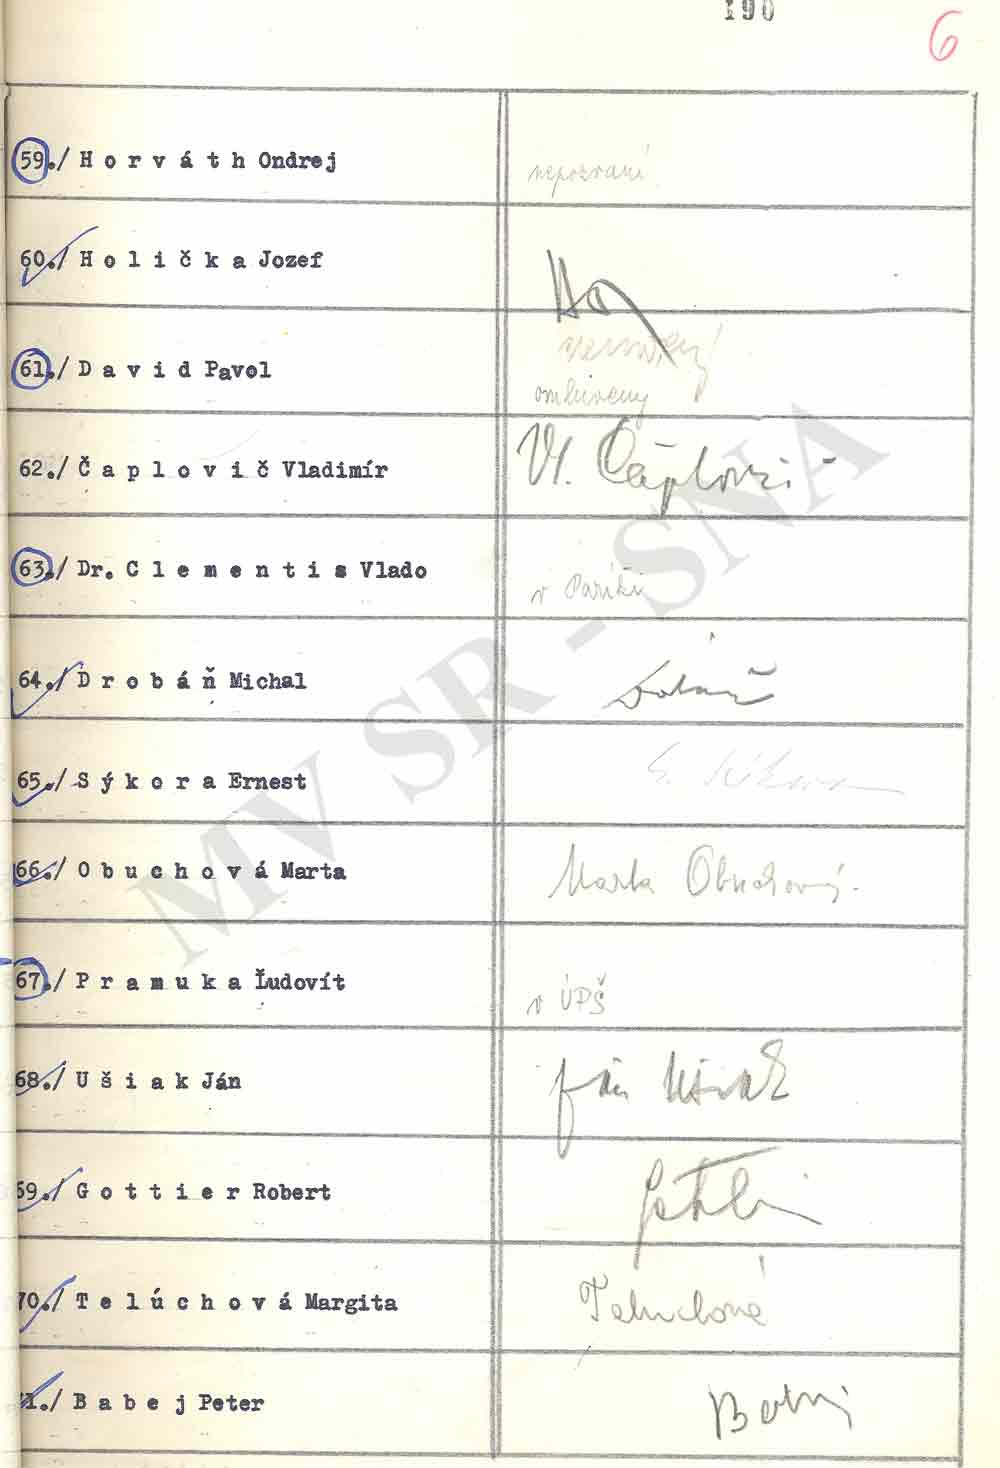 190
6
59./ H o r v á t h Ondrej
nepozvaní
60./ H o l i č k a Jozef
61./ D a v i d Pavol
omluveny
62./ Č a p l o v i č Vladimír
Vl. Čaplovič
63./ Dr. C l e m e n t i s Vlado
v Paríži
64./ D r o b á ň Michal
65./ S ý k o r a Ernest
E. Sýkora
66./ O b u c h o v á Marta
Marta Obuchová.
67./ P r a m u k a Ľudovít
v ÚPŠ
68./ U š i a k Ján
Ján Ušiak
69./ G o t t i e r Robert
70./ T e l ú c h o v á Margita
Telúchová
71./ B a b e j Peter
Babej
MV SR - SNA